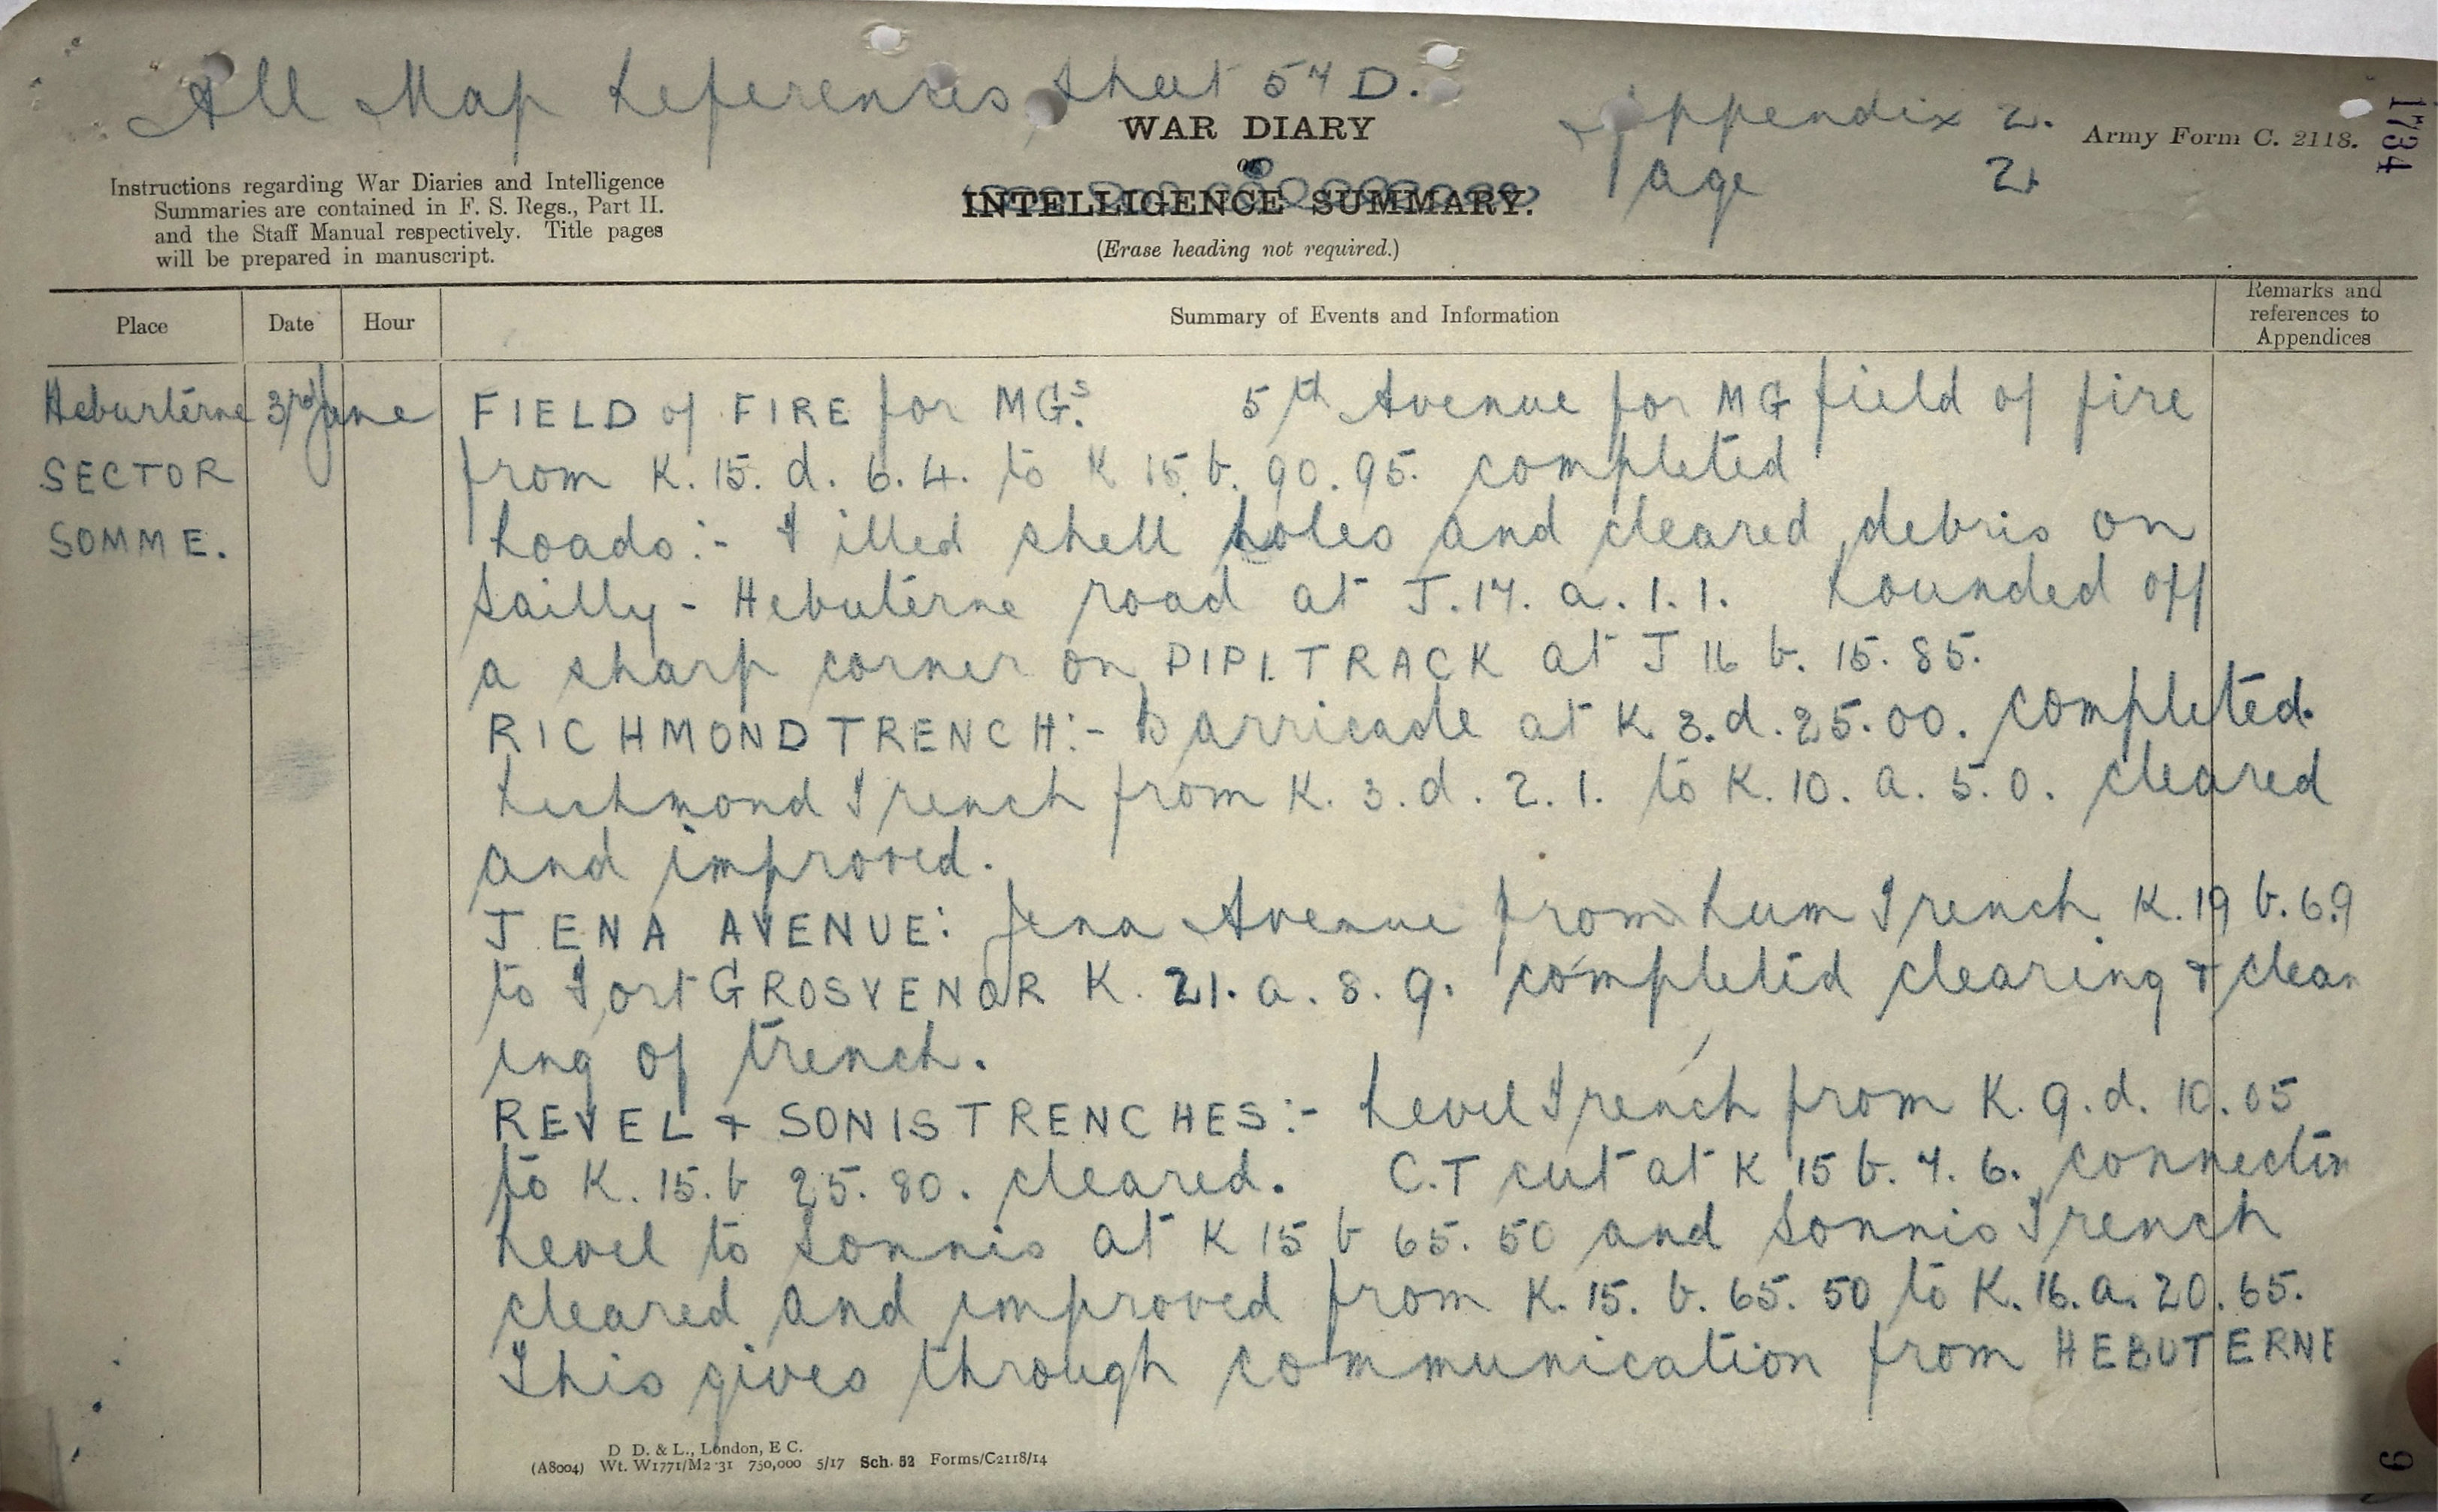 All Map References Sheet 57D.
Appendix 2.
Army Form C. 2118.
1734
WAR DIARY
or
INTELLIGENCE SUMMARY.
(Erase heading not required.)
Page 2.
Instructions regarding War Diaries and Intelligence
Summaries are contained in F. S. Regs., Part II.
and the Staff Manual respectively. Title pages
will be prepared in manuscript.
Place Date Hour Summary of Events and Information Remarks and references to Appendices
Heburtérne 3rd June FIELD of FIRE for MG.s 5th Avenue for MG field of fire
SECTOR from K. 15. d. 6. 4. to K 15. b. 90. 95. completed
SOMME. Roads:- Filled shell holes and cleared debris on
Sailly - Hebutérne road at J. 17. a. 1. 1. Rounded off
a sharp corner on PIPI. TRACK at J 16 b. 15. 85.
RICHMOND TRENCH:- Barricade at K. 3. d. 25. 00. completed.
Richmond Trench from K. 3. d. 2. 1. to K. 10. a. 5. 0. cleared
and improved.
JENA AVENUE: Jena Avenue from Rum Trench K. 19 b. 6.9
to Fort GROSVENOR K. 21. a. 8. 9. completed clearing + clean
ing of trench.
REVEL + SONIS TRENCHES:- Revel Trench from K. 9. d. 10. 05
to K. 15. b 25. 80. cleared. C.T cut at K 15 b. 7. 6. connectin
Revel to Sonnis at K 15 b 65. 50 and Sonnis Trench
cleared and improved from K. 15. b. 65. 50 to K. 16. a. 20. 65.
This gives through communication from HEBUTERNE
D. D. & L., London, E C.
(A8004) Wt. W1771/M2 31 750,000 5/17 Sch. 52 Forms/C2118/14
9